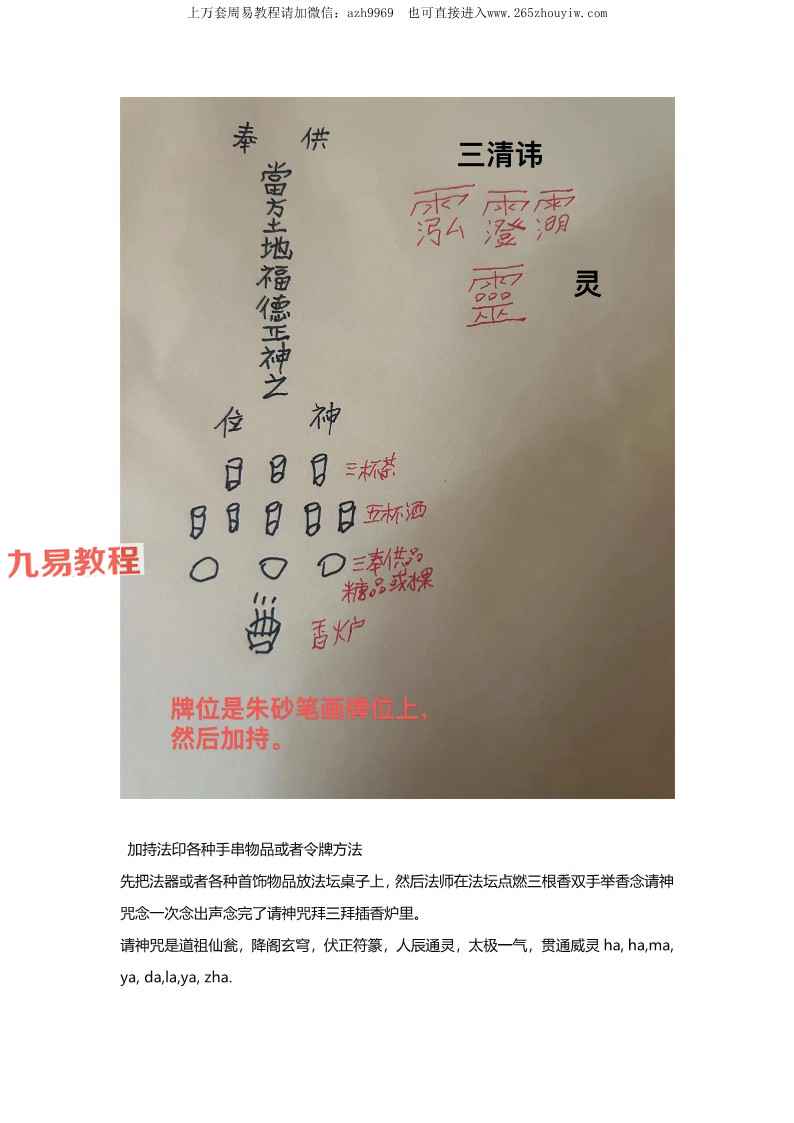 上万套周易教程请加微信：azh9969 也可直接进入www.265zhouyiw.com
奉 供
當方土地福德正神之
位 神
三清讳
靈
灵
三杯茶
五杯酒
三奉供品
糖品或水果
香炉
九易教程
牌位是朱砂笔画牌位上，
然后加持。
加持法印各种手串物品或者令牌方法
先把法器或者各种首饰物品放法坛桌子上，然后法师在法坛点燃三根香双手举香念请神
咒念一次念出声念完了请神咒拜三拜插香炉里。
请神咒是道祖仙瓮，降阁玄穹，伏正符篆，人辰通灵，太极一气，贯通威灵 ha, ha,ma,
ya, da,la,ya, zha.